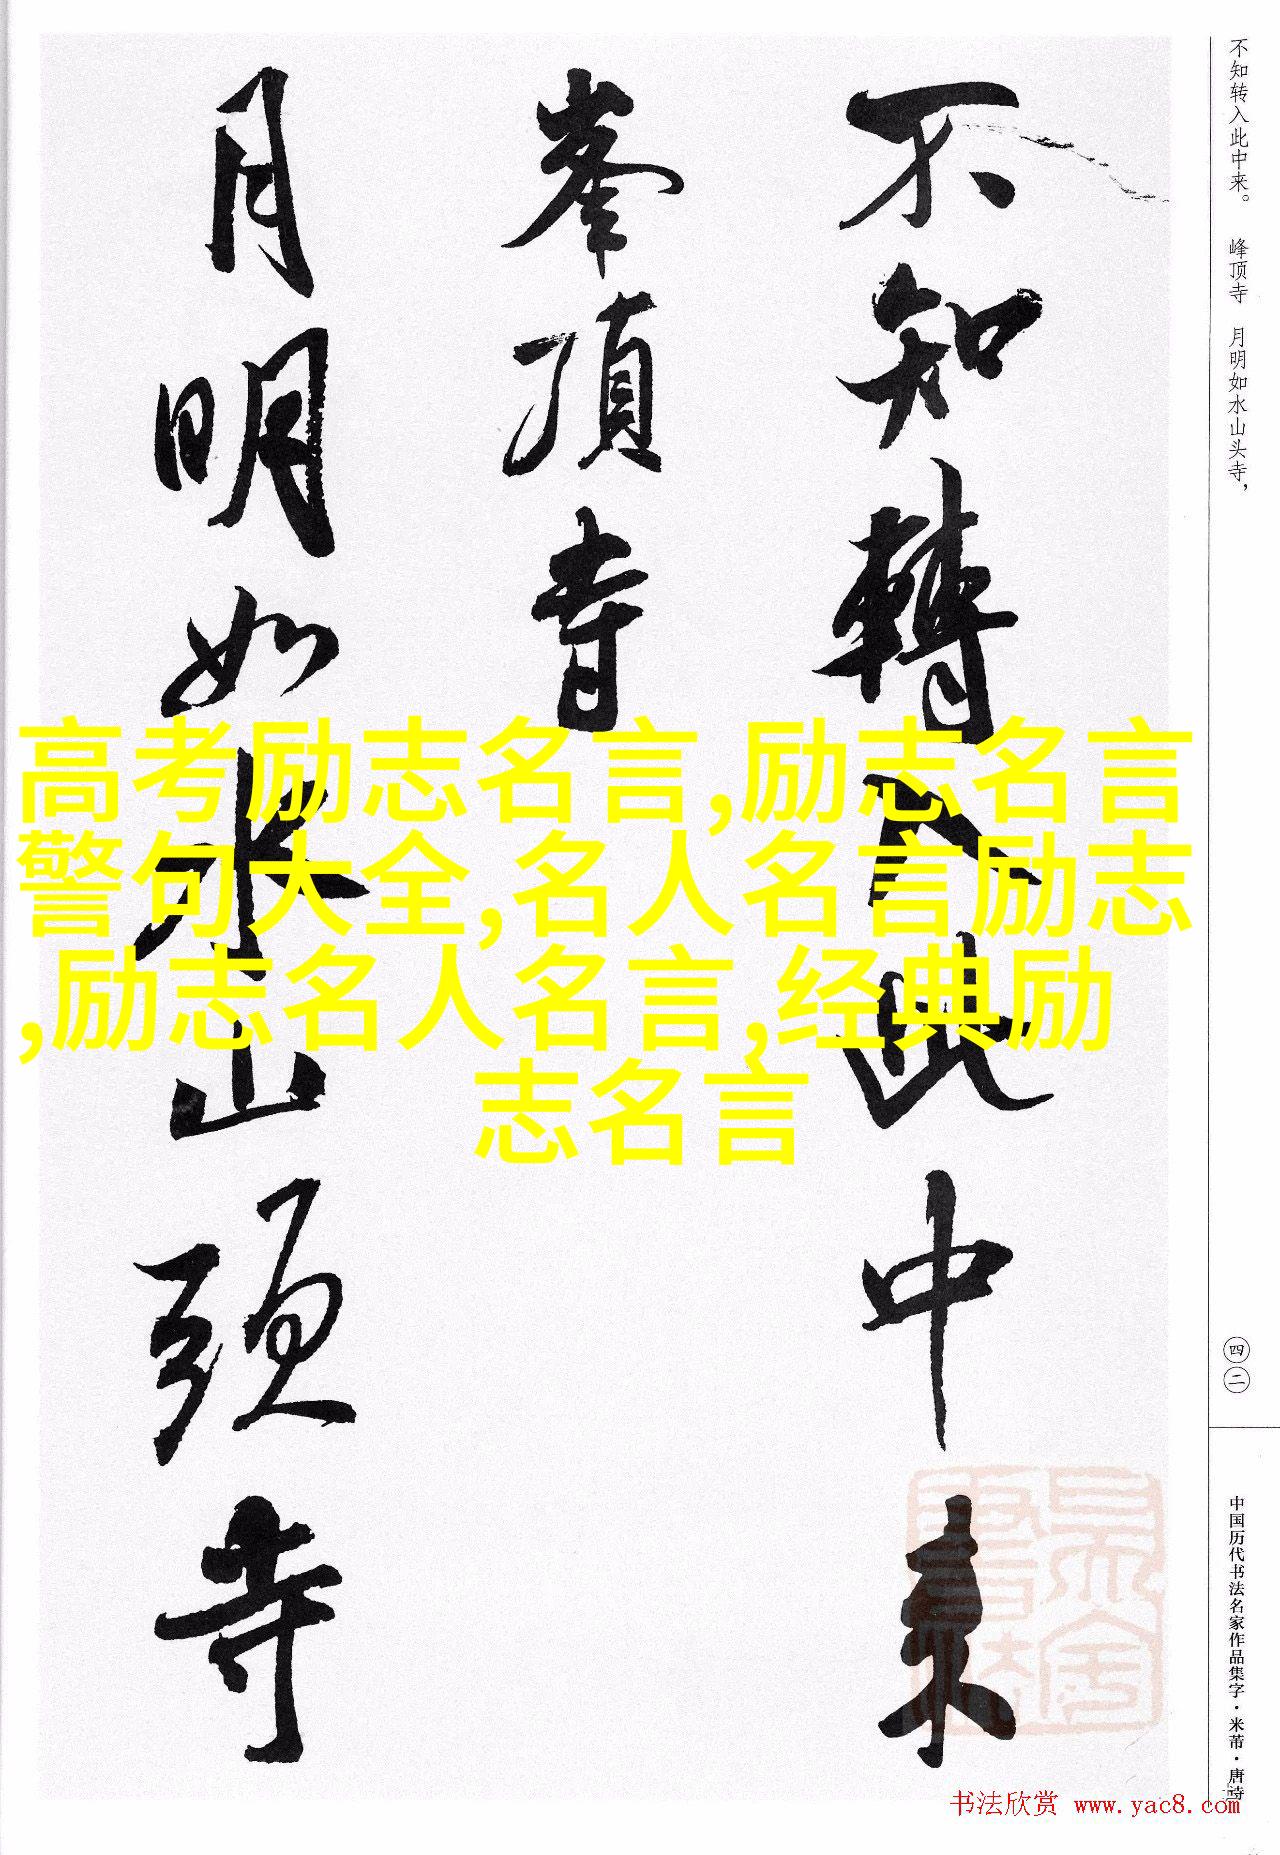 不知轉入此中來
峯頂寺
月明如水山頭寺
不知转入此中来。 峰顶寺 月明如水山头寺，
四二
中国历代书法名家作品集字·米芾·唐诗
高考励志名言,励志名言
警句大全,名人名言励志
,励志名人名言,经典励
志名言
书法欣赏 www.yac8.com